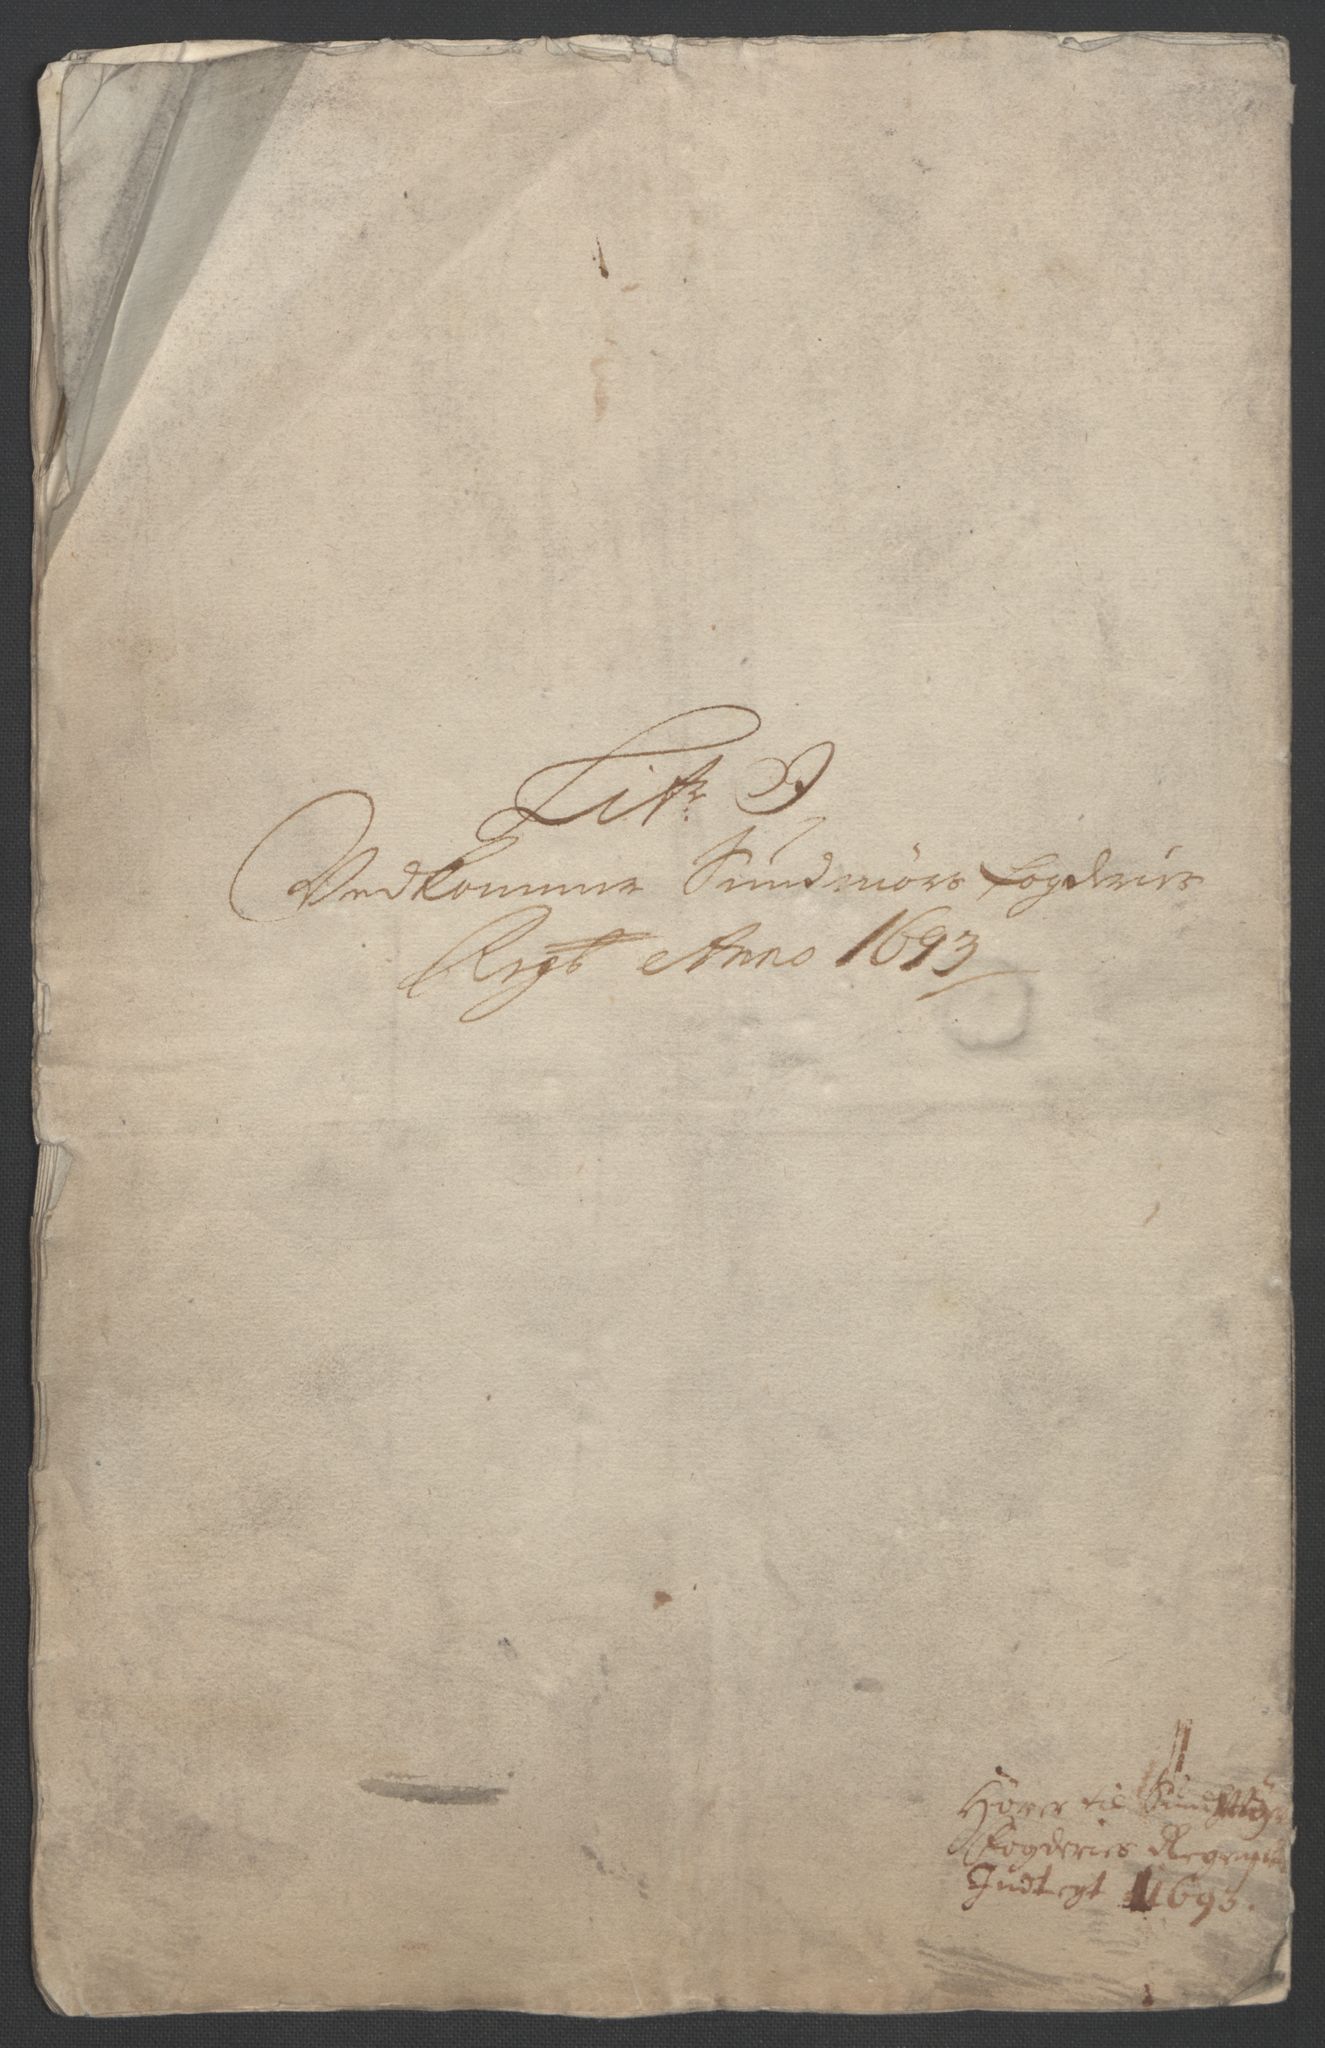 Litr. D
Vedkommer Sundmörs Fogderies
Regsk Anno 1693
Hörer til Sundmörs
Fogderies Regensk
Indtegt 1693.